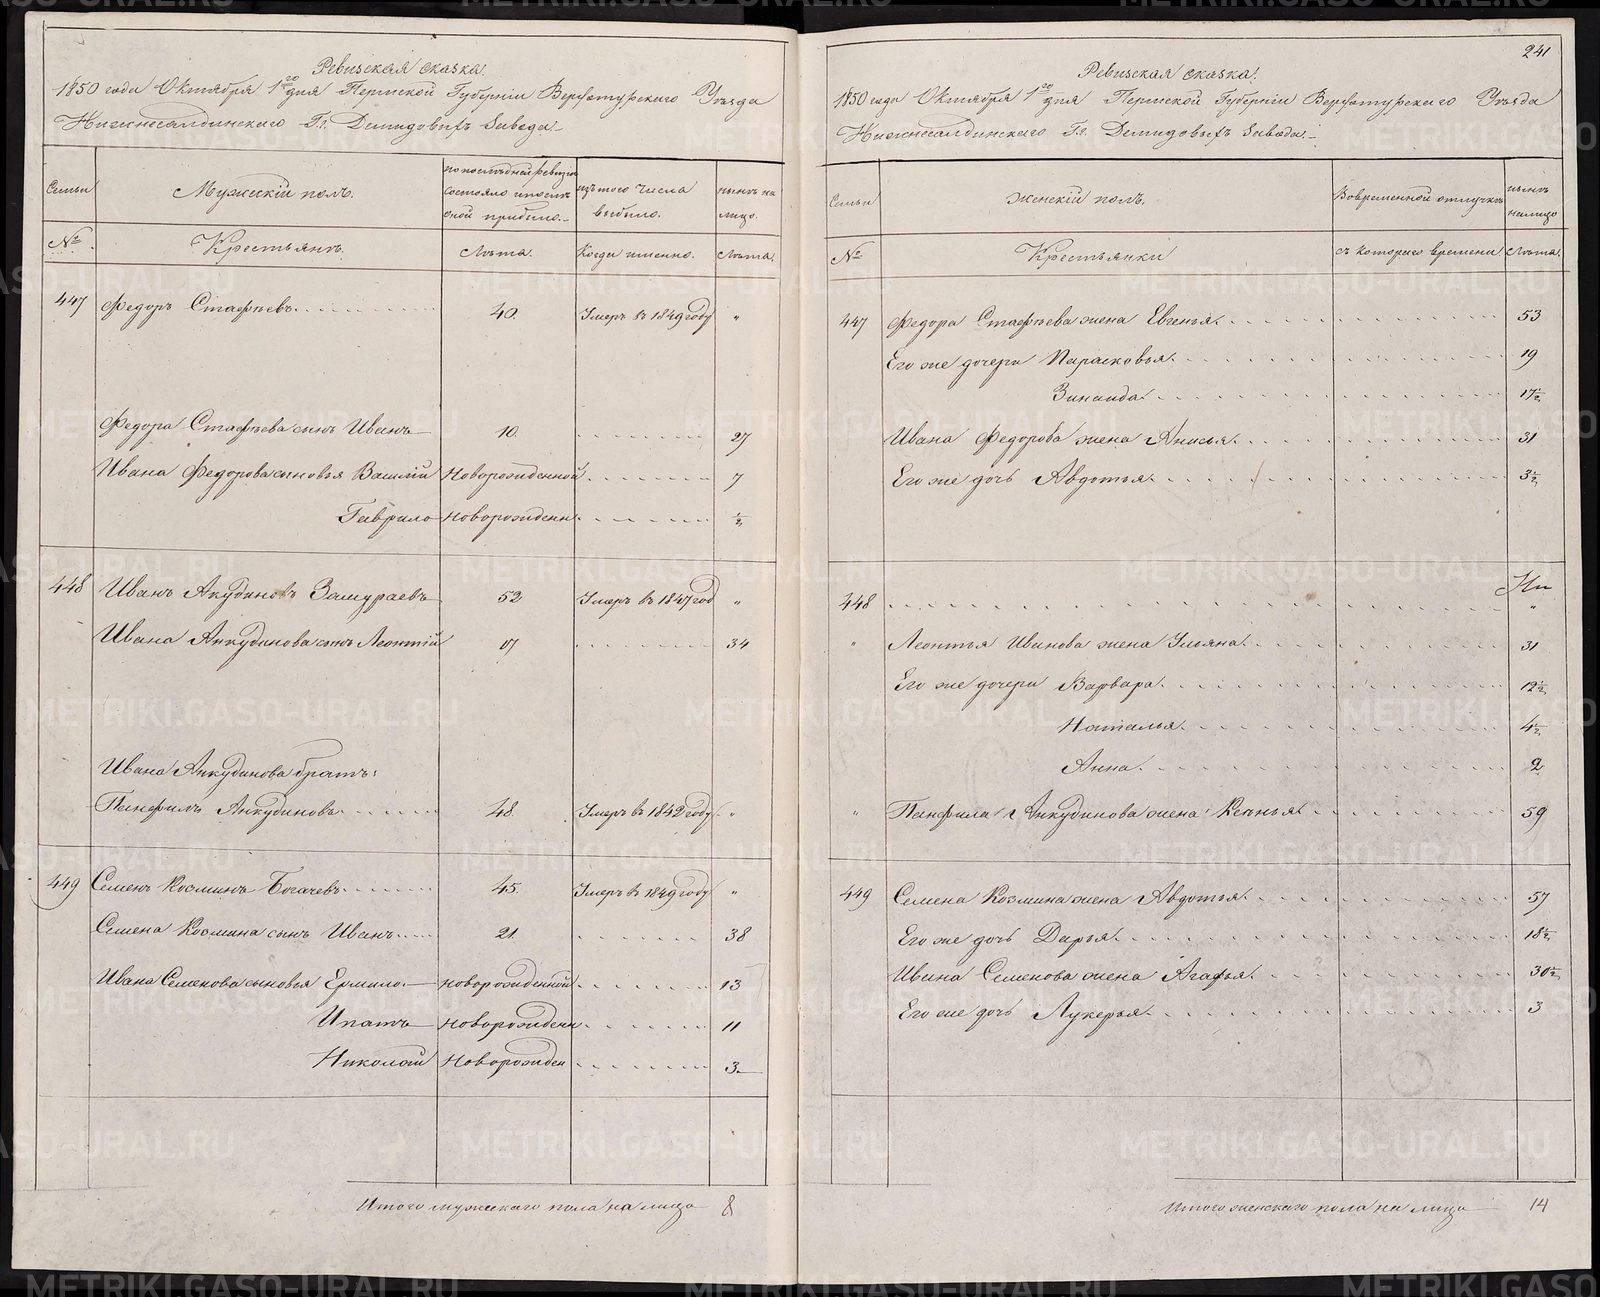 Ревизская сказка.
1850 года Октября 1го дня Пермской Губернiи Верхотурскаго Уѣзда
Нижнесалдинскаго Гг. Демидовыхъ Завода
Семьи
Мужскiй полъ.
по последней ревизiи состояло и после оной прибыло.
изъ того числа выбыло.
нынѣ на лицо.
№
Крестьянъ.
Лѣта.
Когда именно.
Лѣта.
447 Федоръ Стафѣевъ. 40. Умеръ въ 1849 году "
Федора Стафѣева сынъ Иванъ 10. 27
Ивана Федорова сыновья Василiй Новорожденной 7
Гаврило Новорожденн. ½
448 Иванъ Акудиновъ Замураевъ 52 Умеръ въ 1847 год "
Ивана Анкудинова сынъ Леонтiй 17 34
Ивана Анкудинова братъ:
Панфилъ Анкудиновъ. 48. Умеръ въ 1842 году. "
449 Семенъ Козминъ Богачевъ. 45. Умеръ въ 1849 году "
Семена Козмина сынъ Иванъ. 21. 38
Ивана Семенова сыновья Ермило. новорожденной 13
Ипатъ новорожденн 11
Николай Новорожден 3
Итого мужскаго пола на лицо 8
241
Ревизская сказка.
1850 года Октября 1го дня Пермской Губернiи Верхотурскаго Уѣзда
Нижнесалдинскаго Гг. Демидовыхъ Завода.
Семьи
Женскiй полъ.
Во временной отлучкѣ
нынѣ на лицо
№
Крестьянки
съ котораго времени
Лѣта.
447 Федора Стафѣева жена Евгенья. 53
Его же дочери Парасковья. 19
Зинаида. 17½
Ивана Федорова жена Анисья. 31
Его же дочь Авдотья. 3½
448 "
" Леонтья Иванова жена Ульяна. 31
Его же дочери Варвара. 12½
Наталья. 4½
Анна. 2
" Панфила Анкудинова жена 59
449 Семена Козмина жена Авдотья. 57
Его же дочь Дарья. 18½
Ивана Семенова жена Агафья. 30½
Его же дочь Лукерья. 3
Итого женскаго пола на лицо 14
METRIKI.GASO-URAL.RU